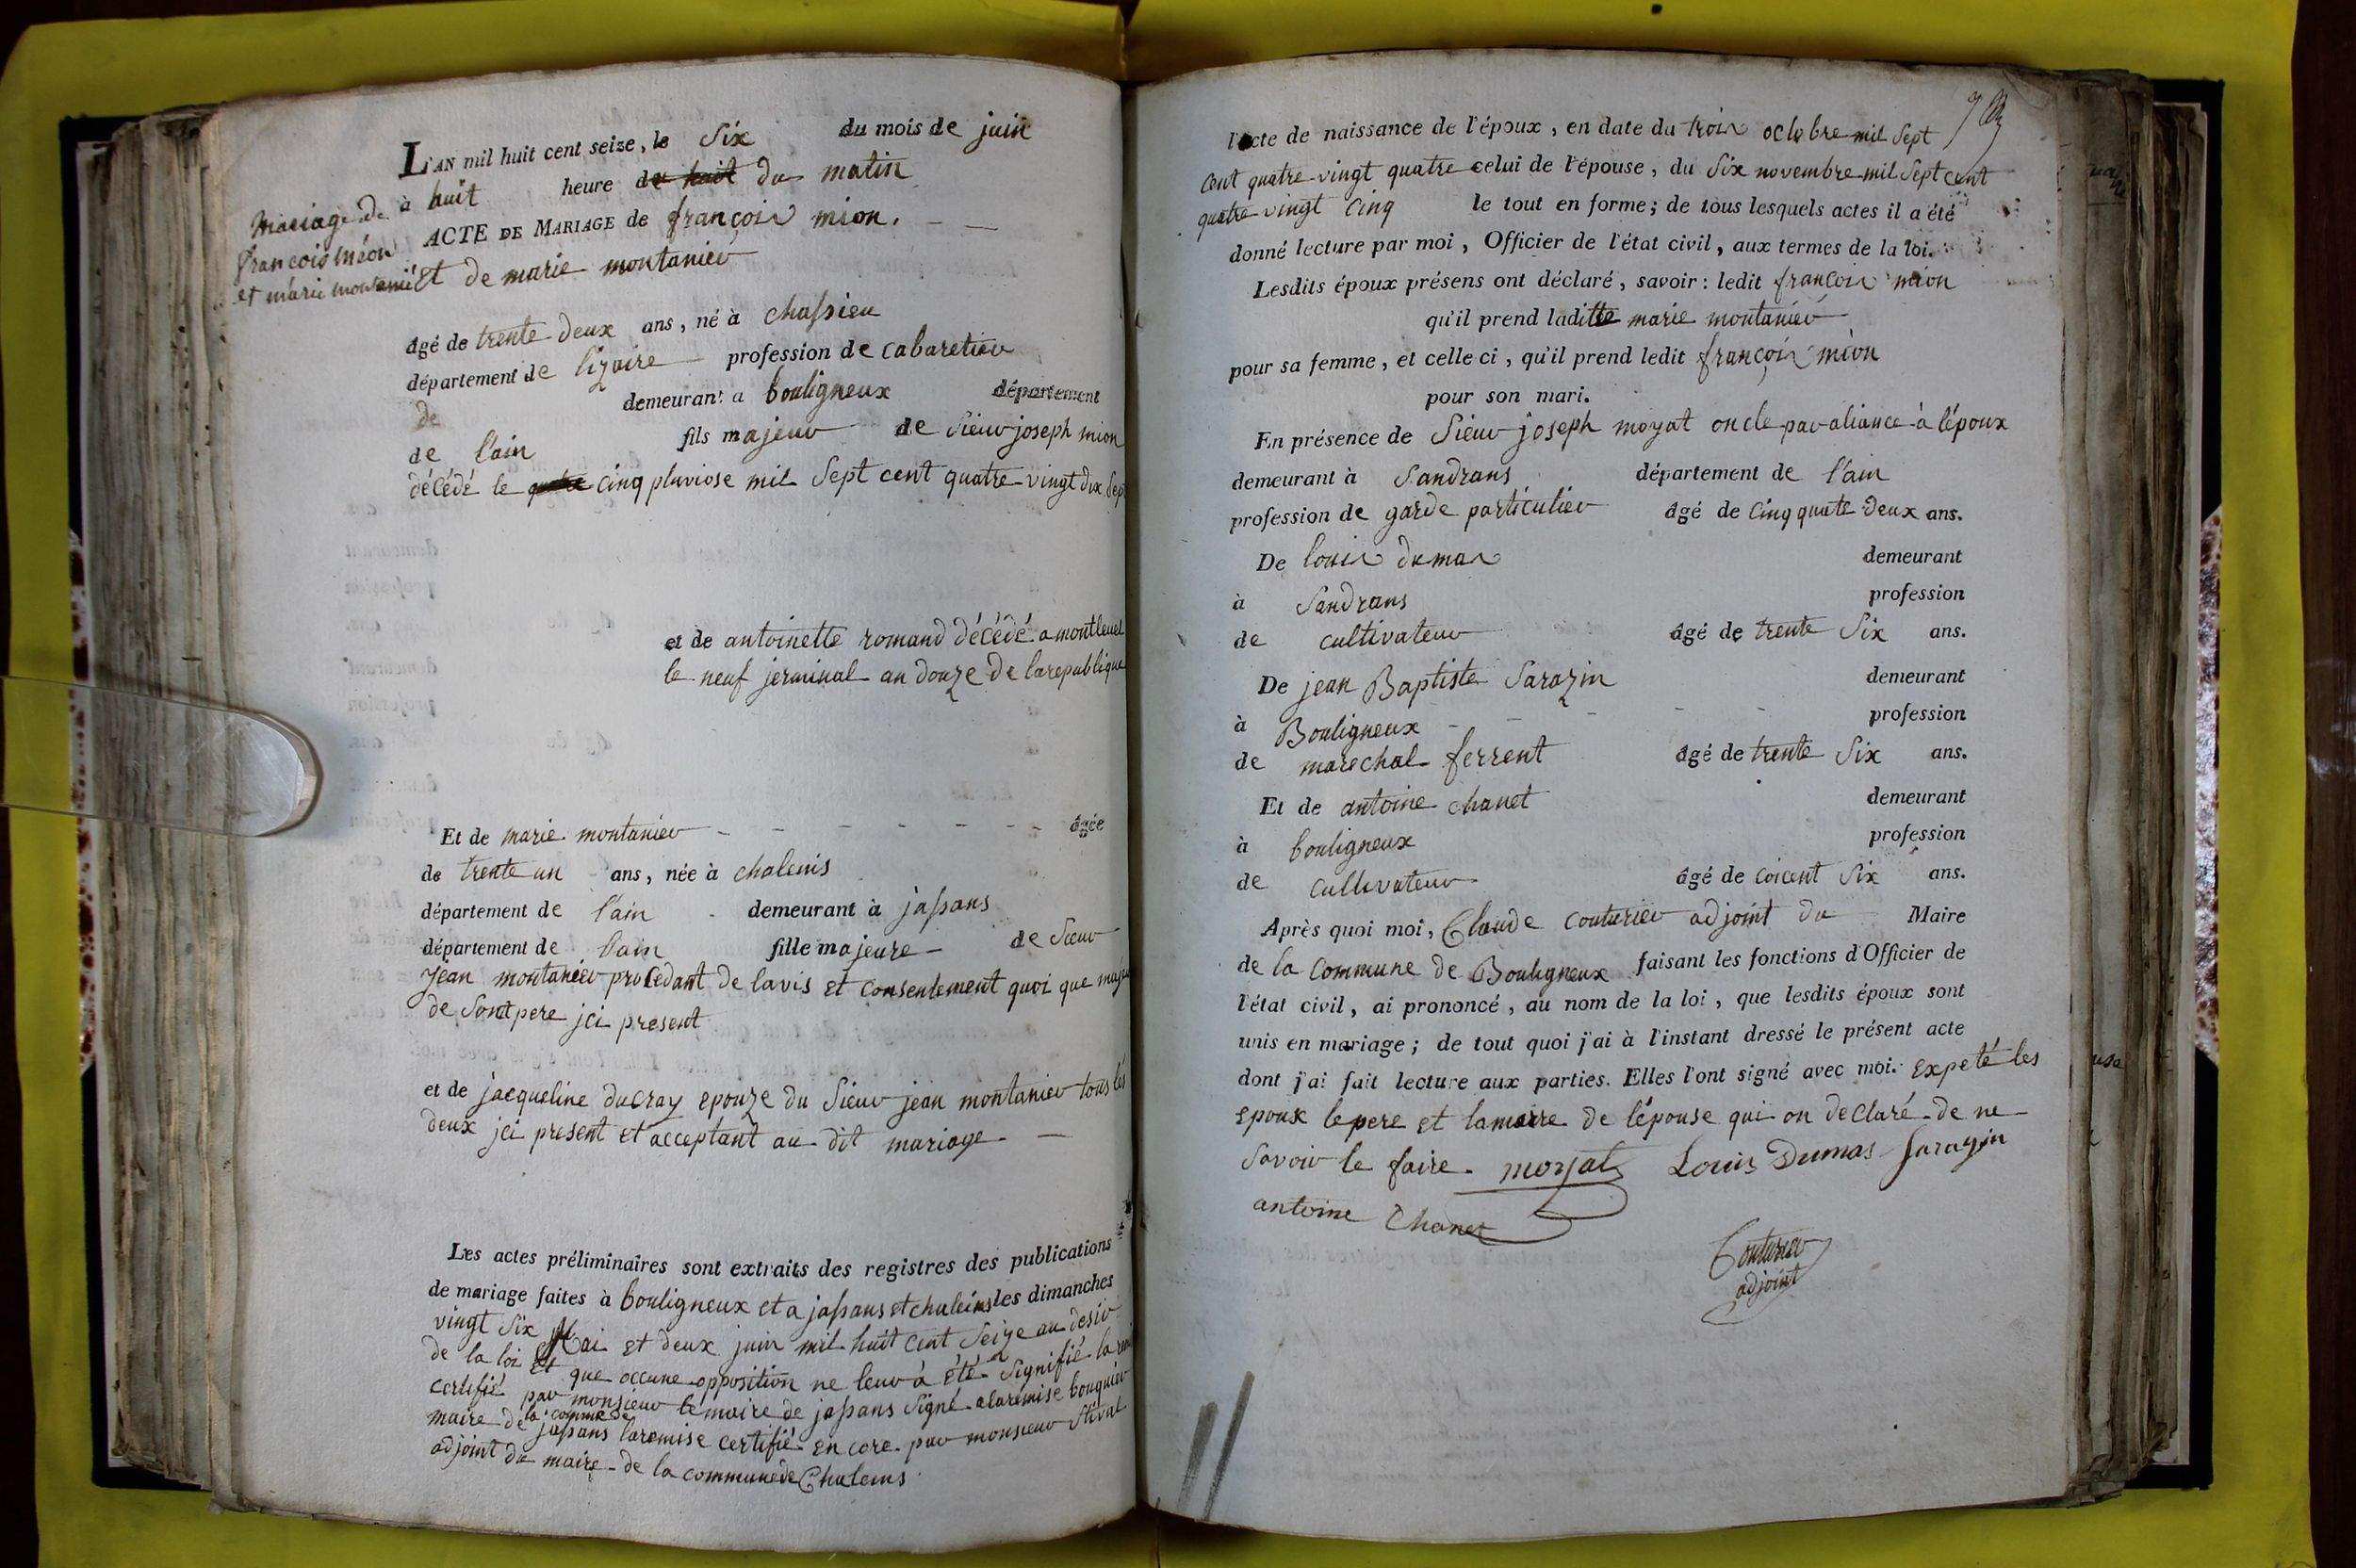 L'AN mil huit cent seize, le Six du mois de juin
à huit heure de huit du matin
Mariage de
francois méon
et marie montanié
ACTE DE MARIAGE de françois mion.
Et de marie montanier
âgé de trente deux ans, né à chassieu
département de lizaire profession de cabaretier
de demeurant a bouligneux département
de l'ain fils majeur de Sieur joseph mion
décédé le cinq pluviose mil Sept cent quatre-vingt dix Sept
et de antoinette romand décédé a montluel
le neuf jerminal an douze de la republique
Et de marie montanier âgée
de trente un ans, née à chaleins
département de l'ain demeurant à jassans
département de l'ain fille majeure de Sieur
jean montanier procedant de lavis et consentement quoi que
de Sont pere jci present
et de jacqueline ducray epouze du Sieur jean montanier tous les
deux jci present et acceptant au dit mariage
Les actes préliminaires sont extraits des registres des publications
de mariage faites à bouligneux et a jassans et chaleins les dimanches
vingt Six Mai et deux juin mil huit cent Seize au desir
de la loi et que occune opposition ne leur à été Signifié
certifié par monsieur le maire de jassans Signé a laremise bouquier
maire de la comme de jassans laremise certifié en core par monsieur
adjoint du maire de la commune de Chaleins
l'acte de naissance de l'époux, en date du trois octobre mil Sept
Cent quatre vingt quatre celui de l'épouse, du Six novembre mil Sept cent
quatre vingt Cinq le tout en forme; de tous lesquels actes il a été
donné lecture par moi, Officier de l'état civil, aux termes de la loi.
Lesdits époux présens ont déclaré, savoir: ledit françois mion
qu'il prend laditte marie montanier
pour sa femme, et celle ci, qu'il prend ledit françois mion
pour son mari.
En présence de Sieur joseph moyat oncle par aliance à lépoux
demeurant à Sandrans département de l'ain
profession de garde particulier âgé de Cinq quate deux ans.
De louis dumas demeurant
à Sandrans profession
de cultivateur âgé de trente Six ans.
De jean Baptiste Sarazin demeurant
à Bouligneux profession
de marechal ferrent âgé de trente Six ans.
Et de antoine chanet demeurant
à bouligneux profession
de Cultivateur âgé de coicent Six ans.
Après quoi moi, Claude Couturier adjoint du Maire
de la Commune de Bouligneux faisant les fonctions d'Officier de
l'état civil, ai prononcé, au nom de la loi, que lesdits époux sont
unis en mariage; de tout quoi j'ai à l'instant dressé le présent acte
dont j'ai fait lecture aux parties. Elles l'ont signé avec moi. Expeté les
epoux le pere et la maire de lépouse qui on declaré de ne
Savoir le faire. moyat Louis Dumas Sarazin
antoine Chanet
Couturier
adjoint